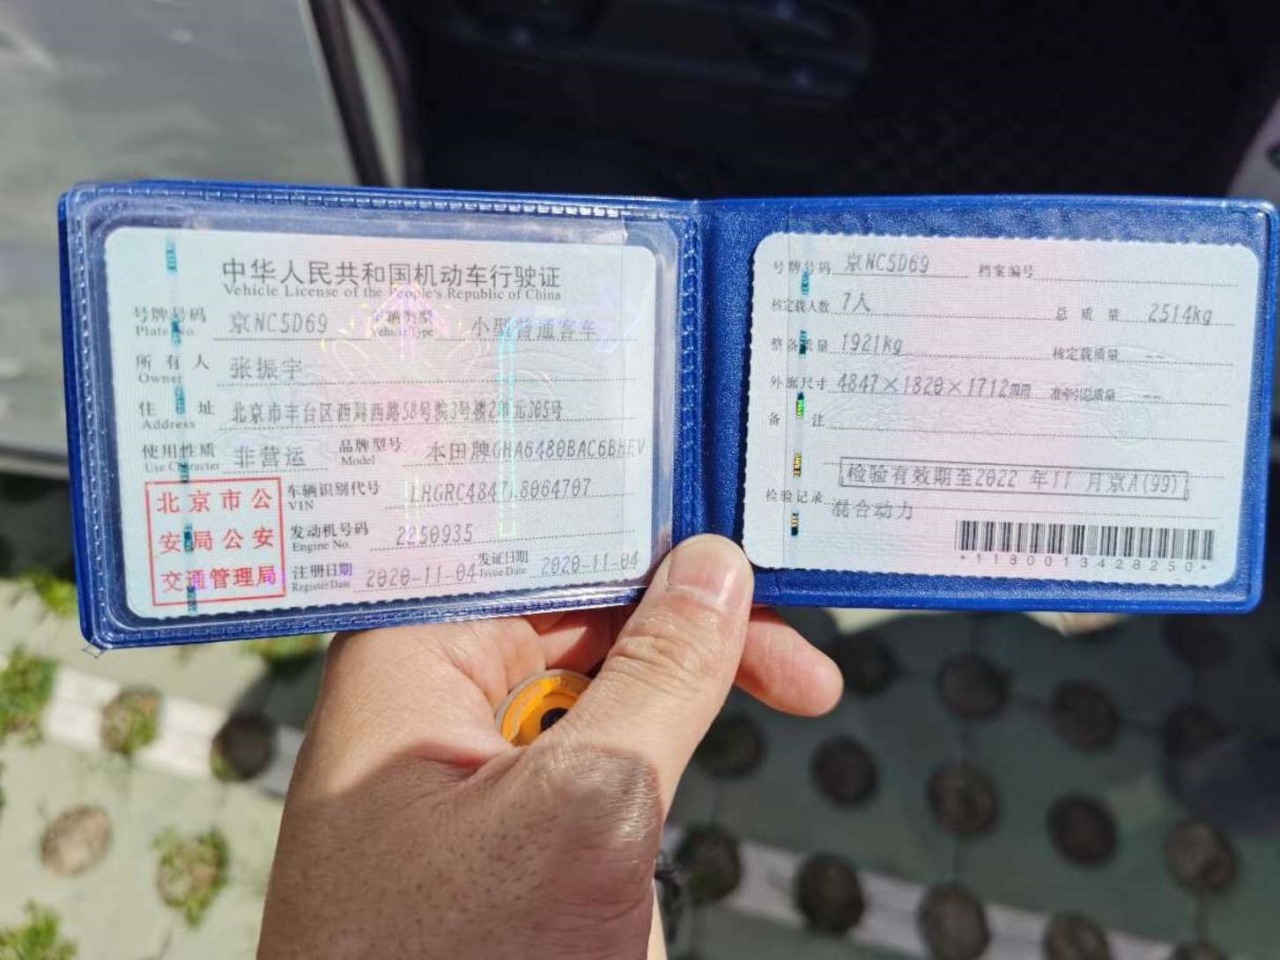 中华人民共和国机动车行驶证
Vehicle License of the People's Republic of China
号牌号码 京NC5D69 车辆类型 小型普通客车
Plate No. Vehicle Type
所有人 张振宇
Owner
住址 北京市丰台区西局西路58号院3号楼2单元305号
Address
使用性质 非营运 品牌型号 本田牌GHA6480BAC6BHEV
Use Character Model
北京市公安局公安交通管理局
车辆识别代号
VIN
发动机号码 2250935
Engine No.
注册日期 2020-11-04 发证日期 2020-11-04
Register Date Issue Date
号牌号码 京NC5D69 档案编号
核定载人数 7人 总质量 2514kg
整备质量 1921kg 核定载质量 --
外廓尺寸 4847×1820×1712mm 准牵引总质量 --
备注
检验有效期至2022 年11 月京A(99)
检验记录
混合动力
*1180013428250*